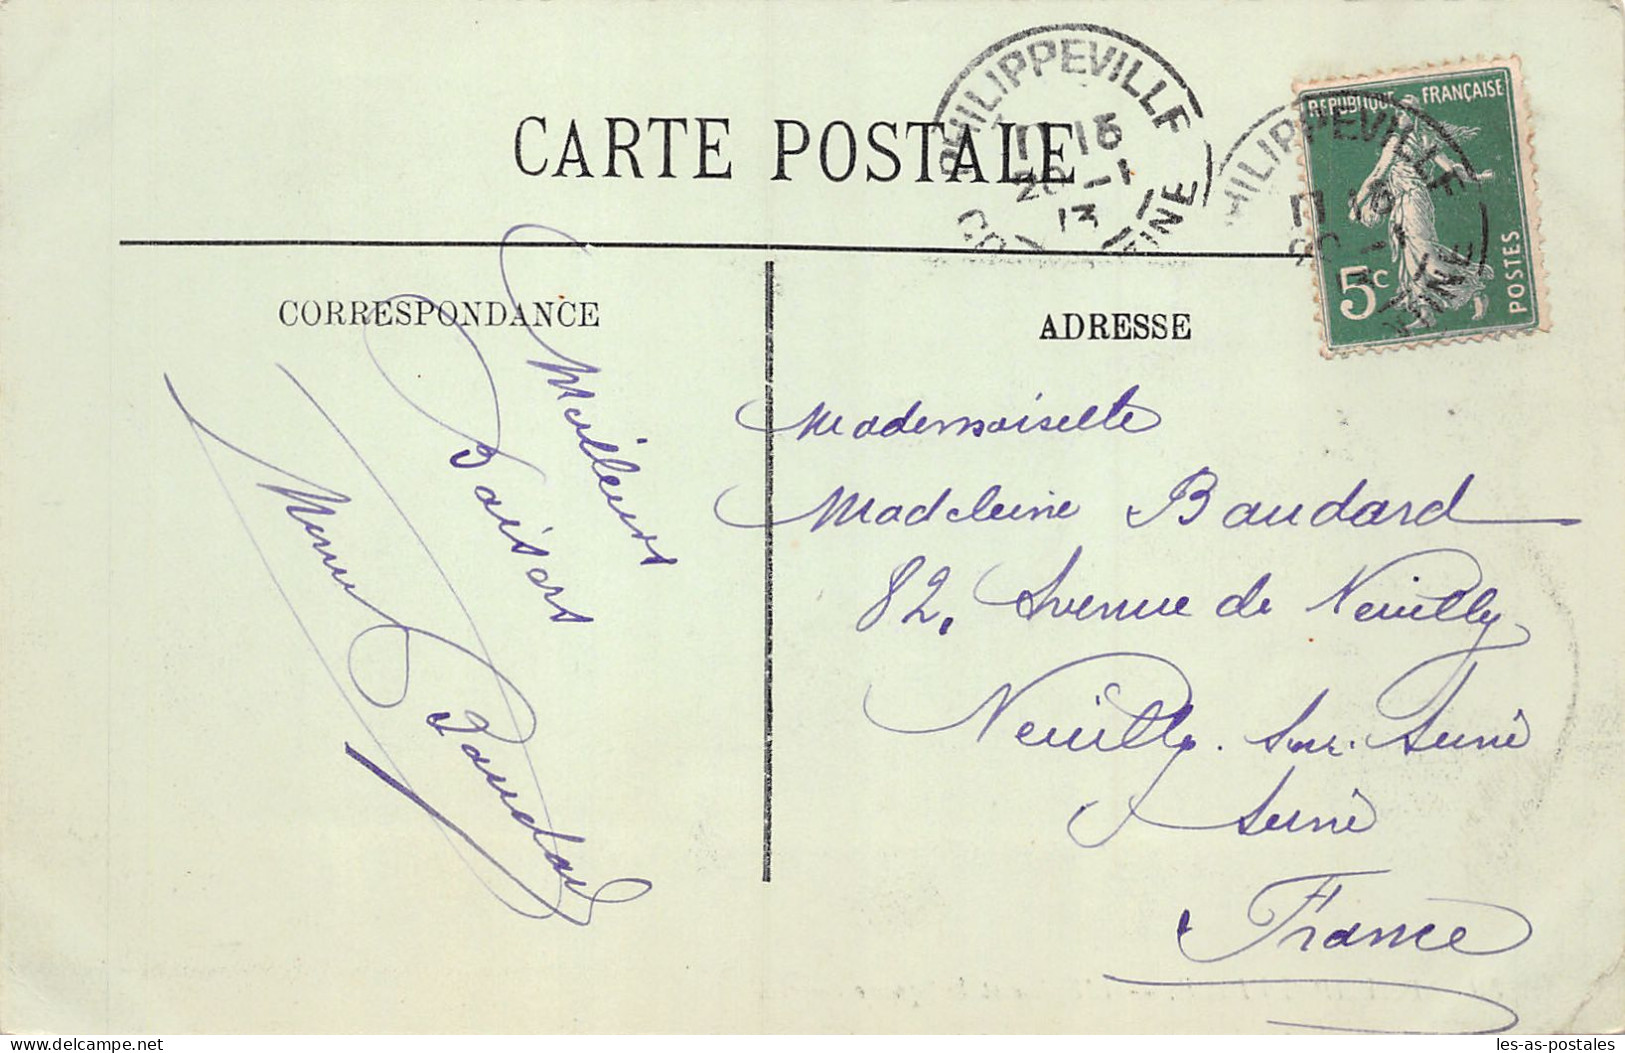 CARTE POSTALE
PHILIPPEVILLE
17 15
20 -1
13
PHILIPPEVILLE
REPUBLIQUE FRANÇAISE
5c
POSTES
CORRESPONDANCE
Meilleurs
Baisers
ADRESSE
Mademoiselle
Madeleine Baudard
82, Avenue de Neuilly
Neuilly-sur-Seine
Seine
France
les-as-postales